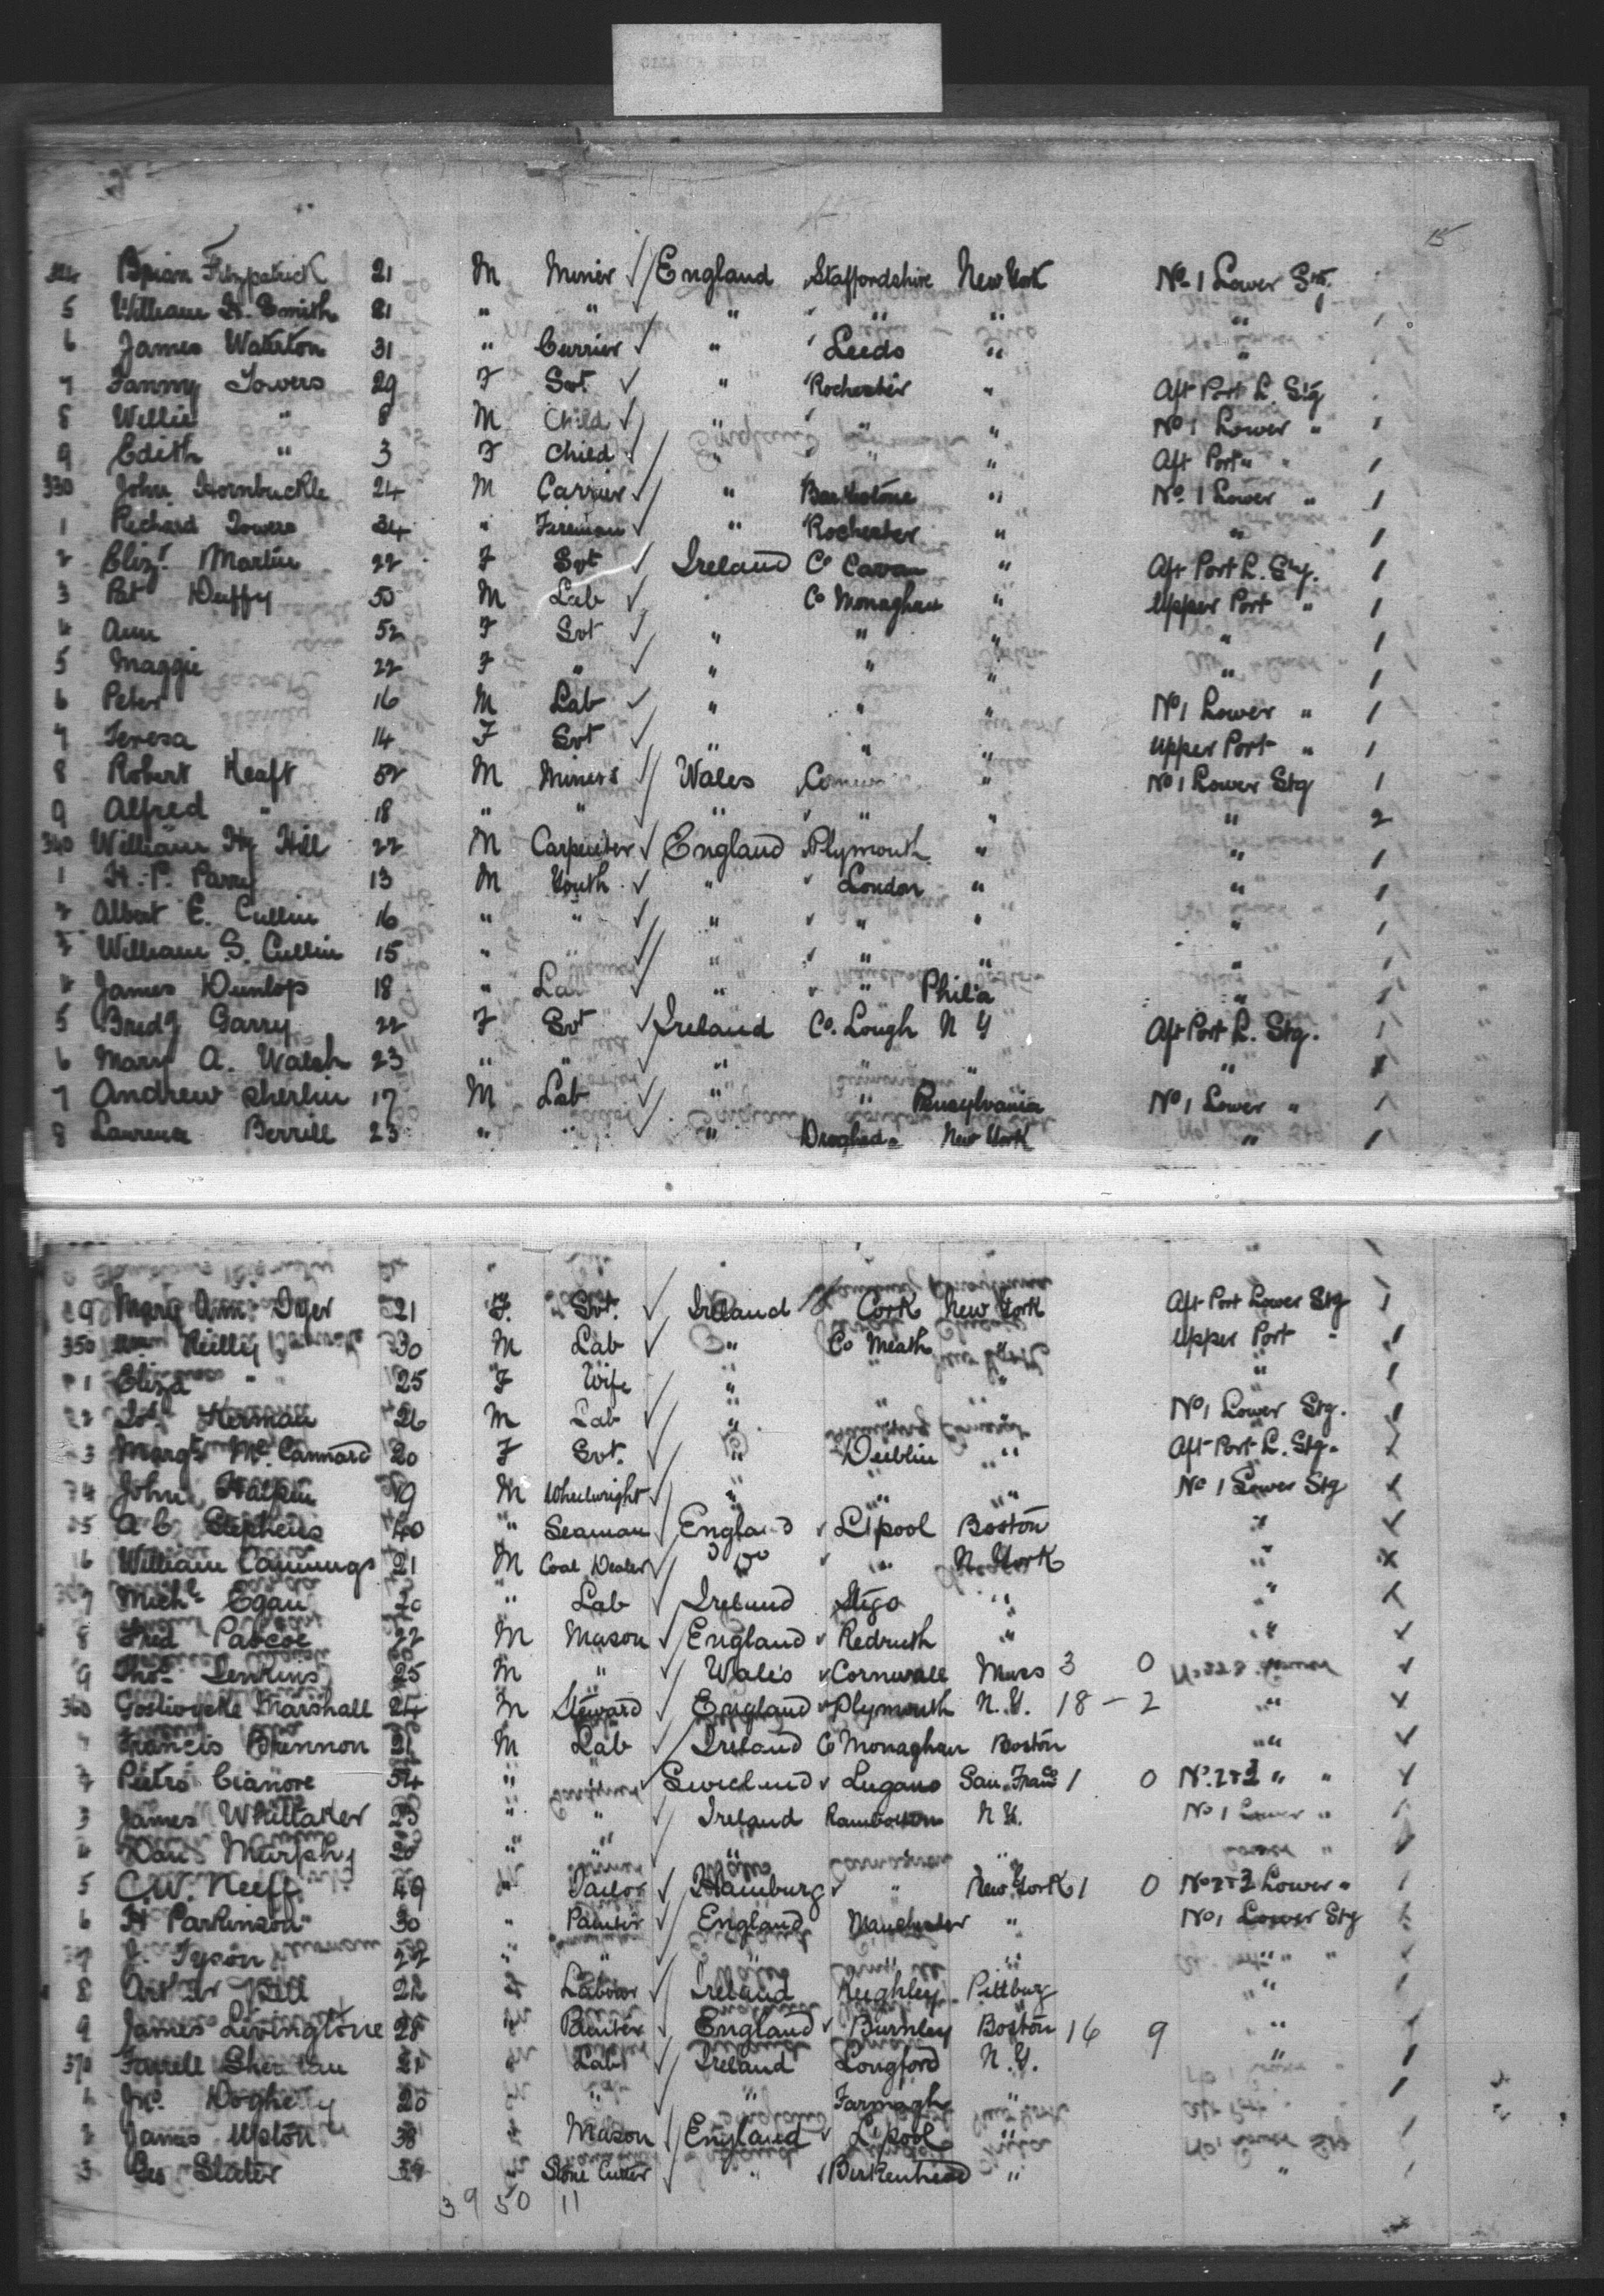 15
324 Brian Fitzpatrick 21 M Miner ✓ England Staffordshire New York No 1 Lower Stg.
5 William H. Smith 21 " " " " " "
6 James Waterton 31 " Currier ✓ " Leeds " "
7 Fanny Towers 29 F Svt ✓ " Rochester " Aft Port L. Stg
8 Willie " 8 M Child ✓ " " " No 1 Lower " 1
9 Edith " 3 F Child ✓ " " " Aft Port " " 1
330 John Hornbuckle 24 M Carrier ✓ " " No. 1 Lower " 1
1 Richard Towers 34 " Fireman ✓ " Rochester " " 1
2 Elizt Martin 22 F Svt ✓ Ireland Co Cavan " Aft Port L. Stg. 1
3 Pat Duffy 50 M Lab ✓ " Co Monaghan " Upper Port " 1
4 Ann 52 F Svt ✓ " " " " 1
5 Maggie 22 F " ✓ " " " " 1
6 Peter 16 M Lab ✓ " " " No 1 Lower " 1
7 Teresa 14 F Svt ✓ " " " Upper Port " 1
8 Robert Keaft 52 M Miners ✓ Wales " No 1 Lower Stg 1
9 Alfred " 18 " " " " " " 2
340 William Hy Hill 22 M Carpenter ✓ England Plymouth " " 1
1 H. P. Parry 13 M Youth ✓ " London " " 1
2 Albert E. Cullin 16 " " ✓ " " " " 1
3 William S. Cullin 15 " " ✓ " " " " 1
4 James Dunlop 18 " Lab ✓ " " Phil'a " 1
5 Bridg Garry 22 F Svt ✓ Ireland Co. Lough N Y Aft Port L. Stg. 1
6 Mary A. Walsh 23 " " " " " 1
7 Andrew Sherlin 17 M Lab ✓ " " Pensylvania No 1 Lower " 1
8 Laurence Berrill 23 " " " Drogheda New York " 1
9 Mary Ann Dyer 21 F. Svt. ✓ Ireland Cork New York Aft Port Lower Stg 1
350 Reilly 30 M Lab ✓ " Co Meath " Upper Port " 1
1 Eliza " 25 F Wife " " " " 1
2 Herman 26 M Lab ✓ " " " No 1 Lower Stg. 1
3 Margt Mc Cannard 20 F Svt. ✓ " Dublin " Aft Port L. Stg.
4 John Halpin 19 M Wheelwright ✓ " " " No 1 Lower Stg
5 A C Stephens 40 " Seaman ✓ England L'pool Boston "
6 William Cummings 21 M Coal Dealer ✓ Do " N. York "
7 Michl Egan 20 " Lab ✓ Ireland Sligo " "
8 Fred Pascoe 22 M Mason ✓ England Redruth " "
9 Thos Jenkins 25 M " ✓ Wales Cornwall Mass 3 0
360 Marshall 24 M Steward ✓ England Plymouth N. Y. 18 - 2 "
1 Francis Brennon 21 M Lab ✓ Ireland Co Monaghan Boston "
2 Pietro Cianore 54 " Lugano San Franco 1 0 No. 2+3 " "
3 James Whittaker 23 " " ✓ Ireland N. Y. No 1 Lower "
4 Danl Murphy 20 " " " Lower "
5 C. W. Neeff 49 " Tailor ✓ Hamburg " New York 1 0 No 2+3 Lower "
6 H Parkinson 30 " Painter ✓ England Manchester " No 1 Lower Stg
7 J. Tyson 22 " " " " "
8 Arthur 22 Labour ✓ Ireland Keighley Pittburg "
9 James Livingstone 28 Painter ✓ England Burnley Boston 16 9 "
370 Farrell Sheridan 21 Lab ✓ Ireland Longford N. Y. " 1
1 Jno. Dogherty 20 " " Farmagh "
2 James Upton 38 Mason ✓ England L'pool "
3 Geo Slater " Stone Cutter ✓ " Birkenhead " "
39 50 11